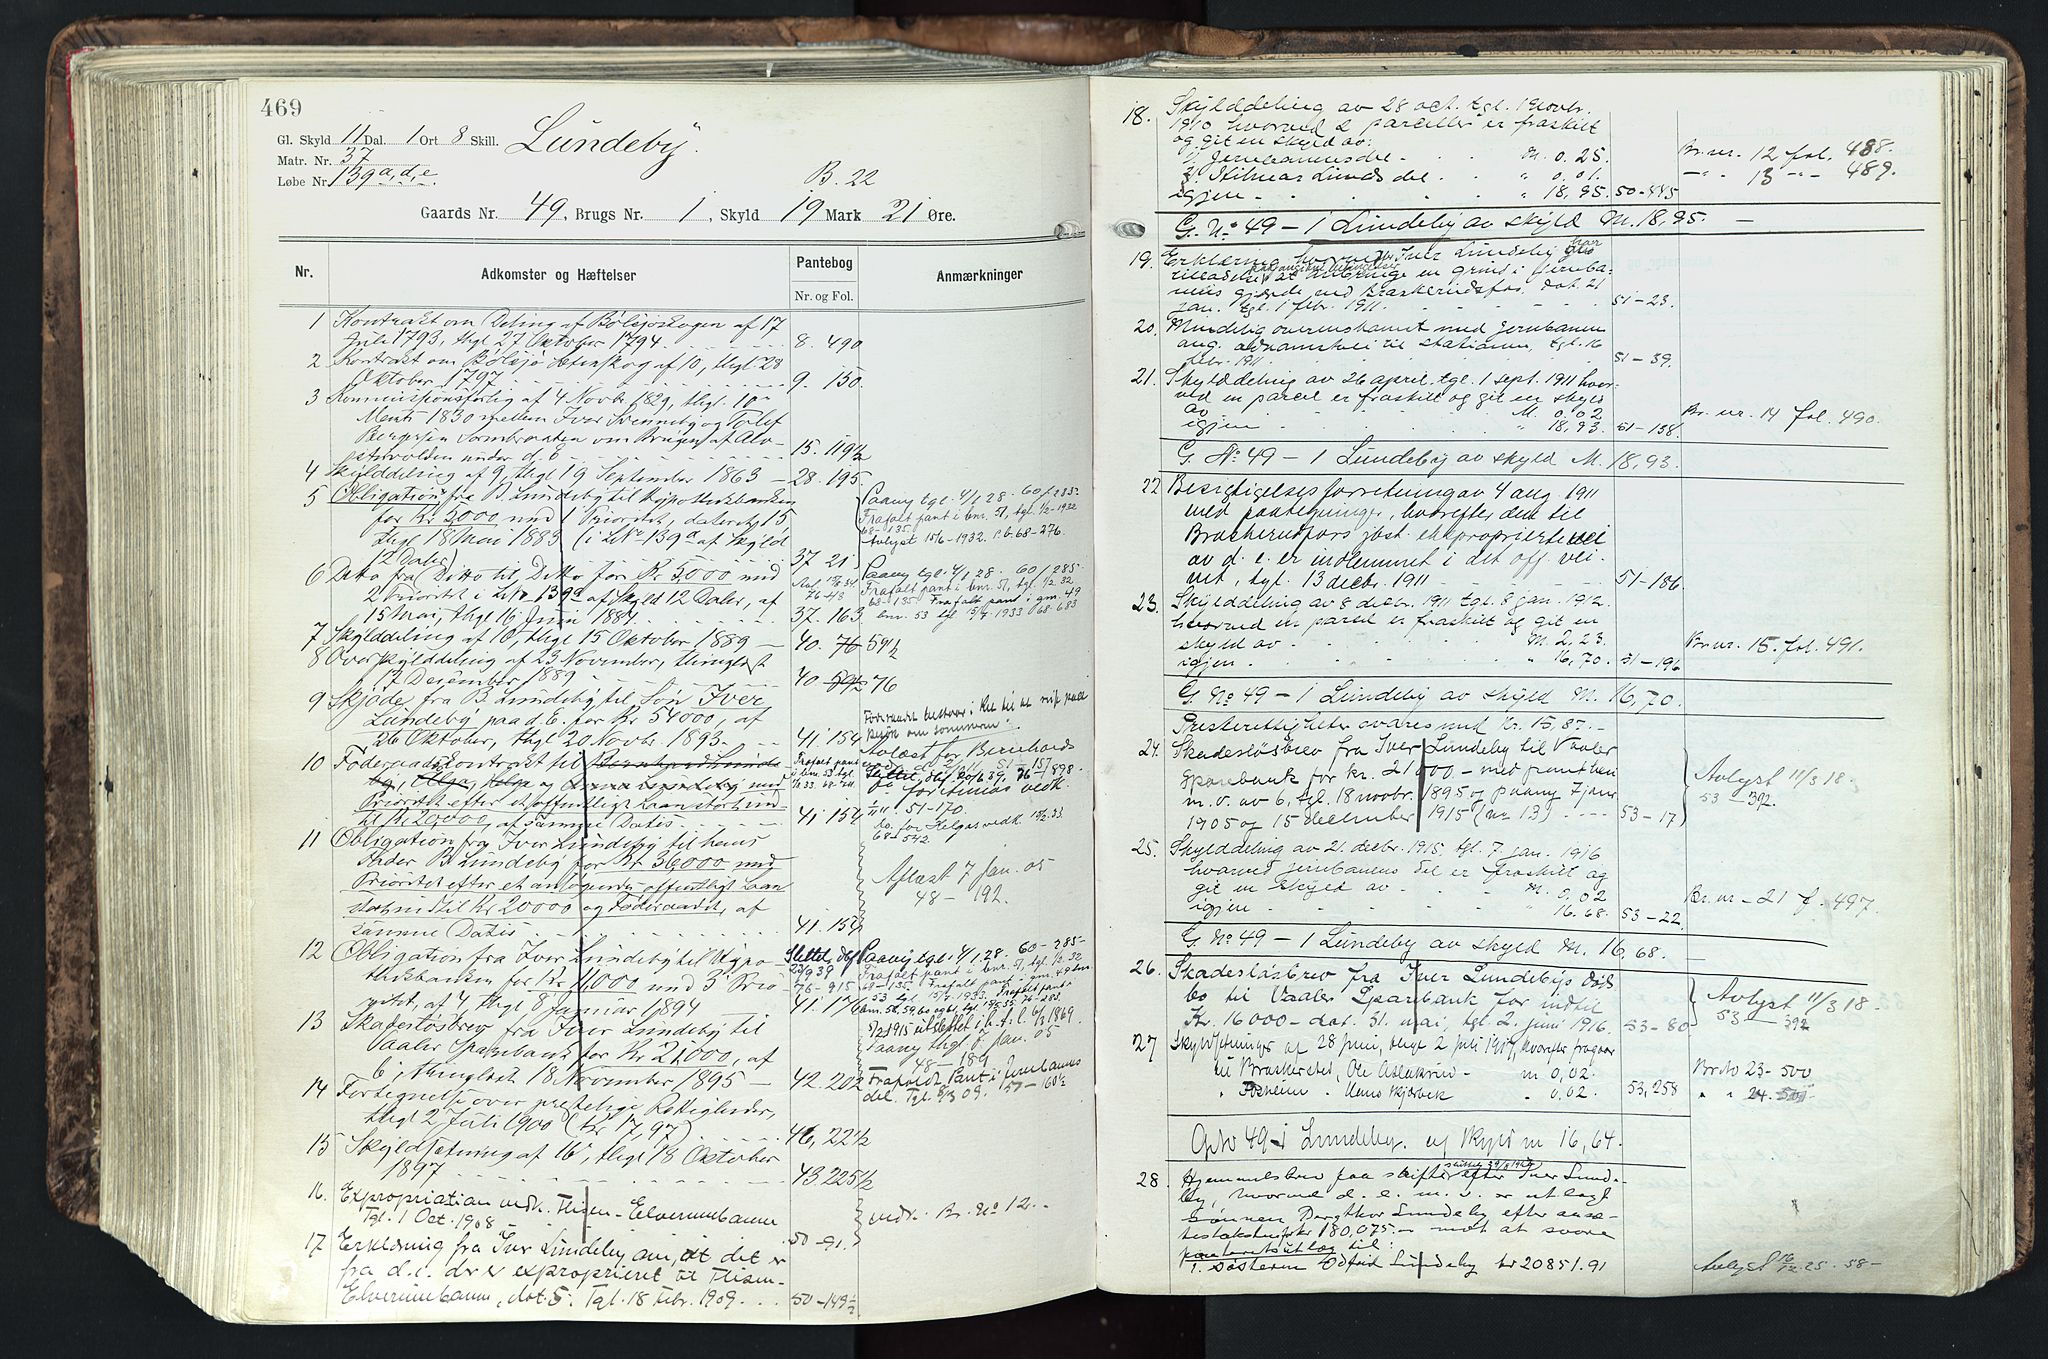 469
Gl. Skyld 11 Dal. 1 Ort 8 Skill. Lundeby.
Matr. Nr. 37
Løbe Nr. 139 a, d, e. B. 22
Gaards Nr. 49, Brugs Nr. 1, Skyld 19 Mark 21 Øre.
Nr. Adkomster og Hæftelser Pantebog Anmærkninger
Nr. og Fol.
1 Kontrakt om Deling af Bølsjøskogen af 17
Juli 1793, thgl 27 Oktober 1794. 8. 490
2 Kontrakt om Bølsjø af 10, thgl 28
Oktober 1797 9. 150.
3 Kommissionsforlig af 4 Novbr. 1829, thgl. 10de
Marts 1830 mellem Iver Svenneby og Tolef
Bergersen om Brugen af
under d. E. 15. 119½
4 Skylddeling af 9, thgl 19 September 1863 28. 195.
5 Obligation fra B. Lundeby til Hypothekbanken Paany tgl. 4/1 28. 60/285-
for Kr 3000 med 1 Prioritet, dateret 15 Frafalt pant i bnr. 51, tgl. ½-1932
thgl 18 Mai 1883 (i LNo 139a af Skyld 68-135.
12 Daler) 37 21 Avlyst 15/6-1932. p.b. 68-276.
6 Ditto fra Ditto til Ditto for Kr 5,000 med Paany tgl. 4/1 28. 60/285-
2 Prioritet i LNr 139a af Skyld 12 Daler, af 76-43 Frafalt pant i bnr. 51, tgl. ½ 32
15 Mai, thgl 16 Juni 1884 37. 163 68-135 Frafalt pant i gnr. 49
bnr. 53 tgl 15/7 1933 68-683
7 Skylddeling af 10, thgl 15 Oktober 1889 40. 76 59½
8 Over Skylddeling af 23 November, thinglæst
17 December 1889 40 59½ 76
9 Skjøde fra B. Lundeby til Søn Iver
Lundeby paa d. E. for Kr 54000, af
26 Oktober, thgl 20 Novbr. 1893. 41. 154
10 Føderaadskontrakt til Bernhard Lunde- Aflæst for Bernhards
by, Olga, Helga og Anna Lundeby med 51-157
Prioritet efter et offentligt Laan stort ind- Slettet, 20/6 39. 76-898.
til Kr. 20,000, af samme Datis 41. 154 51-170.
do. for Helgas vedk.
68-542.
11 Obligation fra Iver Lundeby til hans
Fader B. Lundeby for Kr 36,000 med Aflæst 7 Jan. 05
Prioritet efter et offentligt Laan 48 - 192.
stort indtil Kr 20000 og Føderaadet, af
samme Datis 41. 154
12 Obligation fra Iver Lundeby til Hypo- Paany tgl. 4/1. 28. 60-285-
thekbanken for Kr 11,000 med 3 Prio- 76-915 Frafalt pant i bnr. 51, tgl. ½ 32
ritet, af 4, thgl 8 Januar 1894 41. 176 68-135. Frafalt pant i gnr. 49 bnr.
53 tgl 15/7 1933.
13 Skadesløsbrev fra Iver Lundeby til
Vaaler Sparebank for Kr 21,000, af Paany thgl 7 Jan. 05
6, thinglæst 18 November 1895 42. 202 48-189
Frafaldt Pant i Jernbanens
14 Fortegnelse over præstelige Rettigheder, del. Tgl. 8/3 09. 50-60½
thgl 2 Juli 1900 (Kr 17,97) 46, 22½
15 Skyldsætning af 16, thgl 18 Oktober
1897 43 225½
16. Expropriation vedk. Flisen-Elverumbanen
Tgl. 1 Oct. 1908 50-91. vedk. Br. No 12.
17 Erklæring fra Iver Lundeby om, at det er
fra d. e. der er exproprieret til Flisen-
Elverumbanen, dat. 5. Tgl. 18 Febr. 1909. 50-149½
18. Skylddeling av 28 oct. tgl. 1 novbr.
1910 hvorved 2 parceller er fraskilt
og git en skyld av:
1/ Jernbanens del M. 0.25. Br. nr. 12 fol. 488.
2/ Hilmar Lunds del " 0.01. -"- 13 -"- 489.
igjen " 18,95. 50-445
G. No 49-1 Lundeby av skyld M. 18,95.
19. Erklæring hvorved Iver Lundeby har
tilladelse at anbringe en grind i jernba-
nens gjærde ved Braskerudfos. Dat. 21
jan. tgl. 1 febr. 1911. 51-23.
20. Mindelig overenskomst med jernbanen
ang. adkomstvei til stationen, tgl. 16
febr. 1911 51-39.
21. Skylddeling av 26 april, tgl. 1 sept. 1911 hvor-
ved en parcel er fraskilt og git en skyld
av M. 0,02 Br. nr. 14 fol. 490.
igjen " 18,93. 51-138.
G. No 49-1 Lundeby av skyld M. 18,93.
22 Besigtigelsesforretning av 4 aug. 1911
med paategninger, hvorefter den til
Braskerudfors jbst. eksproprierte vei
av d. e. er indlemmet i det off. vei-
net, tgl. 13 decbr. 1911 51-186.
23. Skylddeling av 8 decbr. 1911 tgl. 8 jan. 1912.
hvorved en parcel er fraskilt og git en
skyld av M. 2,23. Br. nr. 15. fol. 491.
igjen " 16,70. 51-196
G. No 49-1 Lundeby av skyld M. 16,70.
Presterettigheter svares med Kr. 15,87.
24. Skadesløsbrev fra Iver Lundeby til Vaaler
Sparebank for kr. 21000 - med
m. v. av 6, tgl. 18 novbr. 1895 og paany 7 jan. Avlyst 11/3 18.
1905 og 15 december 1915 (nr 13) 53-17 53-392.
25. Skylddeling av 21. decbr. 1915, tgl. 7 jan. 1916
hvorved jernbanens del er fraskilt og
git en skyld av M. 0,02 Br. nr. - 21 f. 497.
igjen " 16.68. 53-22
G. No 49-1 Lundeby av skyld M. 16,68.
26. Skadesløsbrev fra Iver Lundebys døds-
bo til Vaaler Sparebank for indtil Avlyst 11/3 18.
Kr. 16000 - dat. 31. mai, tgl. 2. juni 1916. 53-80 53-392
27 Skyldsetninger af 28 juni, thgl 2 juli 1917, hvorefter fragaar
til Braskerud, Ole m 0,02. Brno 23-500
" Hans Skjørbek " 0,02. 53,258 " " 24. 501
Gno 49-1 Lundeby. af skyld m 16,64.
28. Hjemmelsbrev paa skifte efter Iver Lunde-
by, hvorved d. e. m. v. er utlagt
sønnen Bergthor Lundeby efter
kr 180,075.- mot at svare
panteretsutlæg til:
1. søsteren Lundeby kr 20851.91 Avlyst 16/12 25. 58-